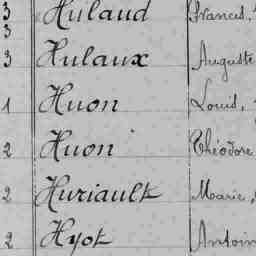 3 Hulaud Francis,
3
3 Hulaux Auguste
1 Huon Louis,
2 Huon Théodore
2 Huriault Marie,
2 Hyot Antoin